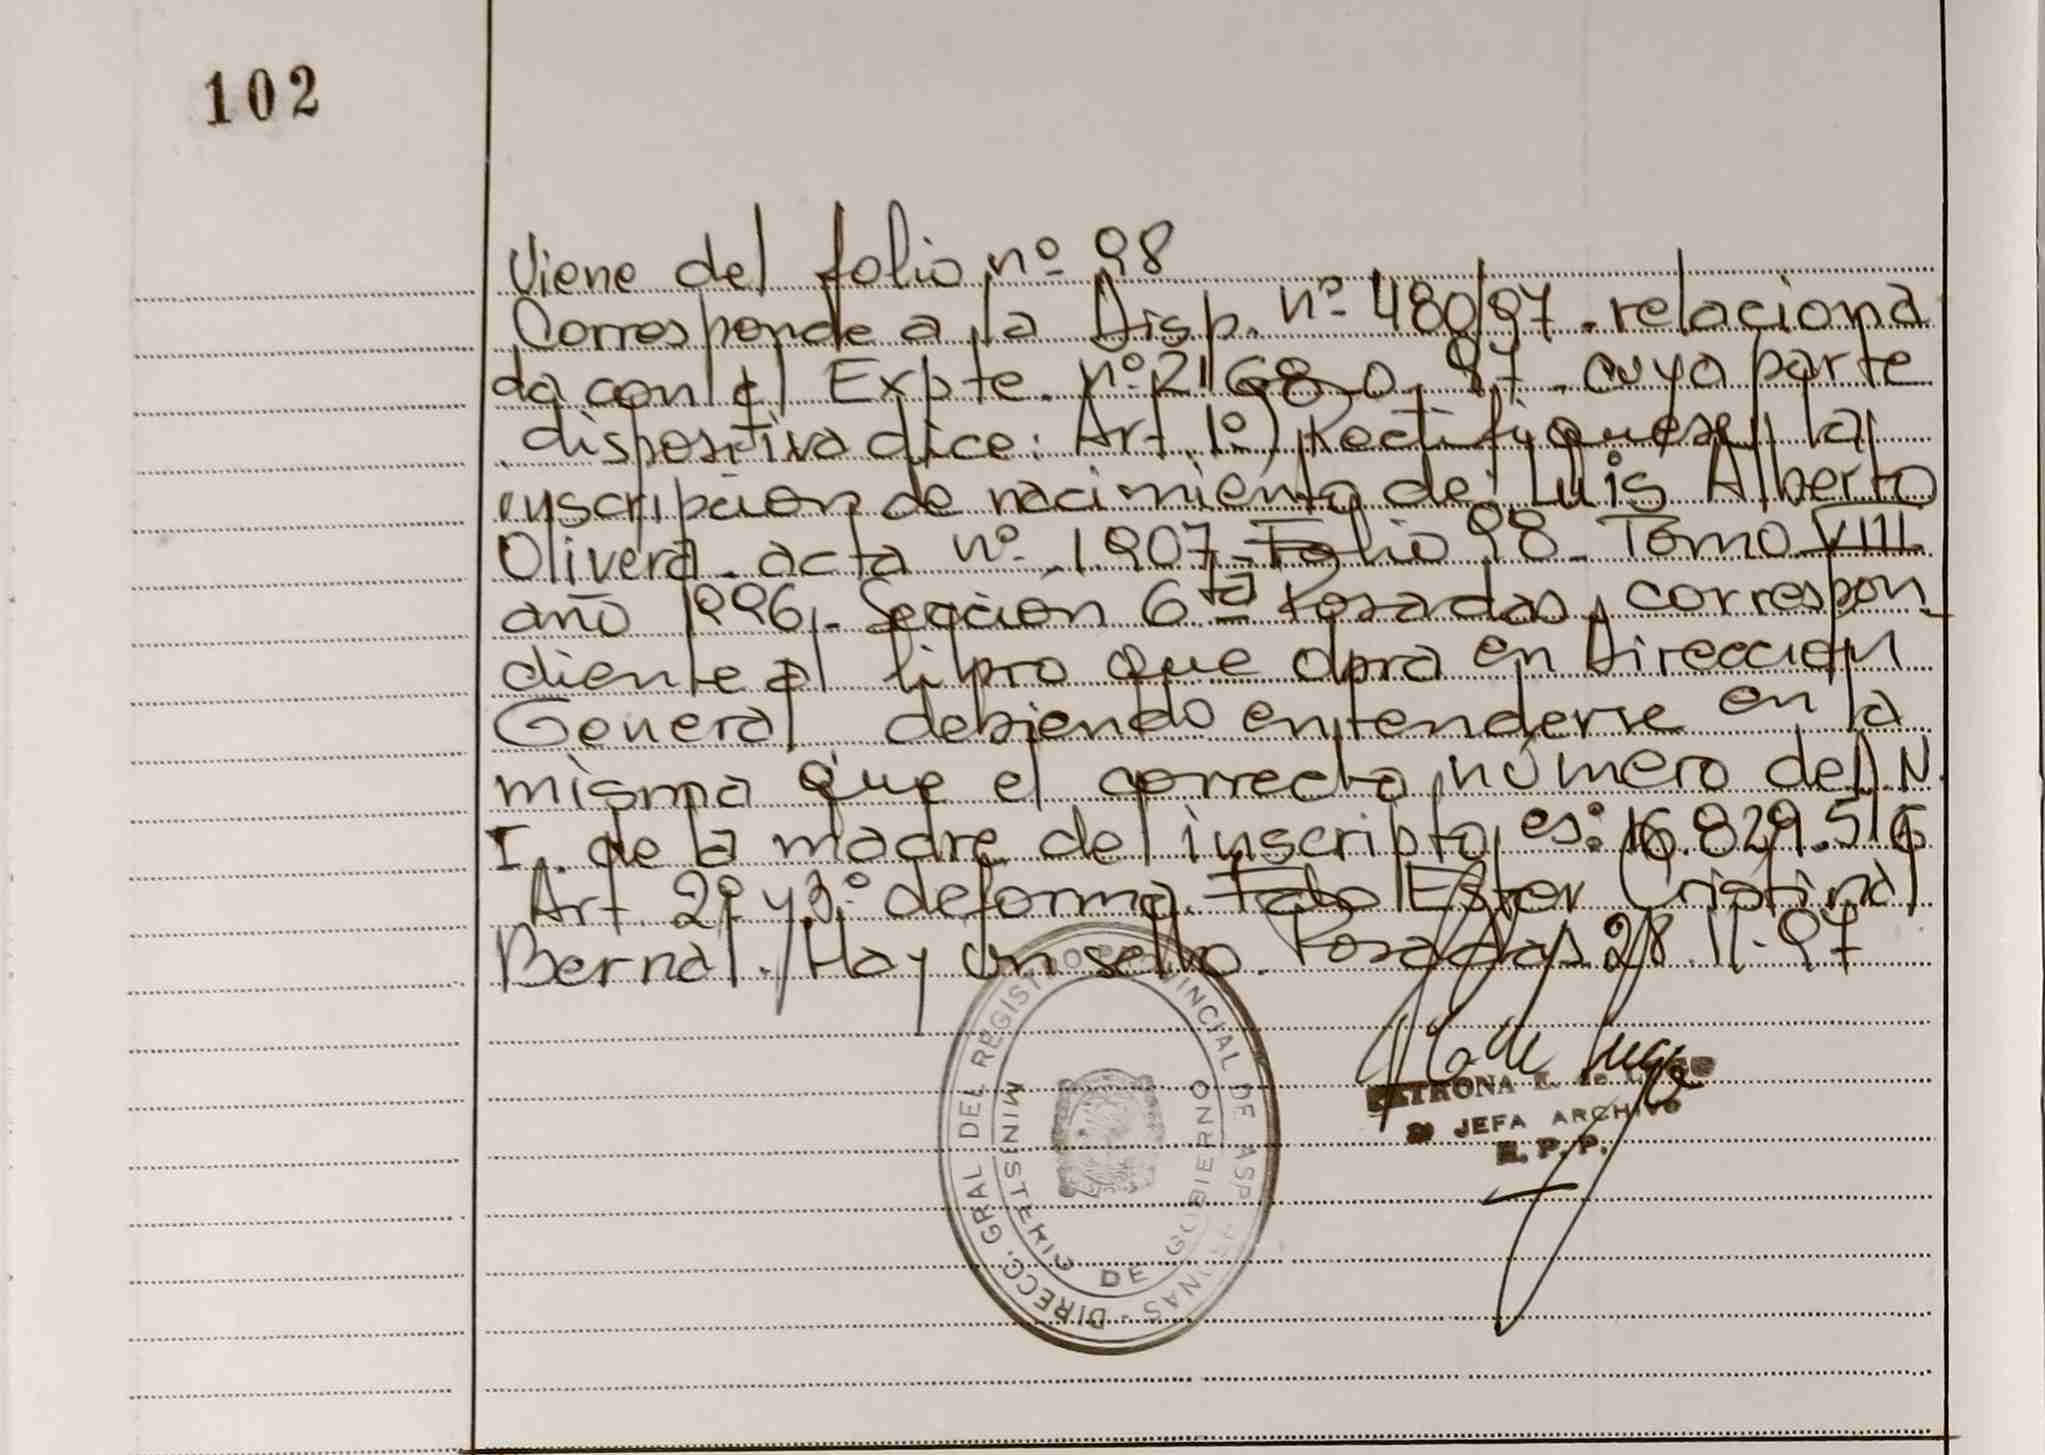 102
Viene del folio nº 98
Corresponde a la Disp. nº 480/97 - relaciona
da con el Expte. nº 2168-0-97 - cuya parte
dispositiva dice: Art. 1º) Rectifiquese la
inscripcion de nacimiento de: Luis Alberto
Olivera - acta nº 1907 - Folio 98 - Tomo VIII
año 1996 - Sección 6ta Posadas, correspon-
diente al libro que obra en Direccion
General debiendo entenderse en la
misma que el correcto número de D.N.
I. de la madre del inscripto es: 16.829.516
Art 2º y 3º de forma. Fdo Ester Cristina
Bernal. Hay un sello. Posadas 28-11-97
DIRECC. GRAL DEL REGISTRO PROVINCIAL DE
MINISTERIO DE GOBIERNO
JEFA ARCHIVO
R. P. P.